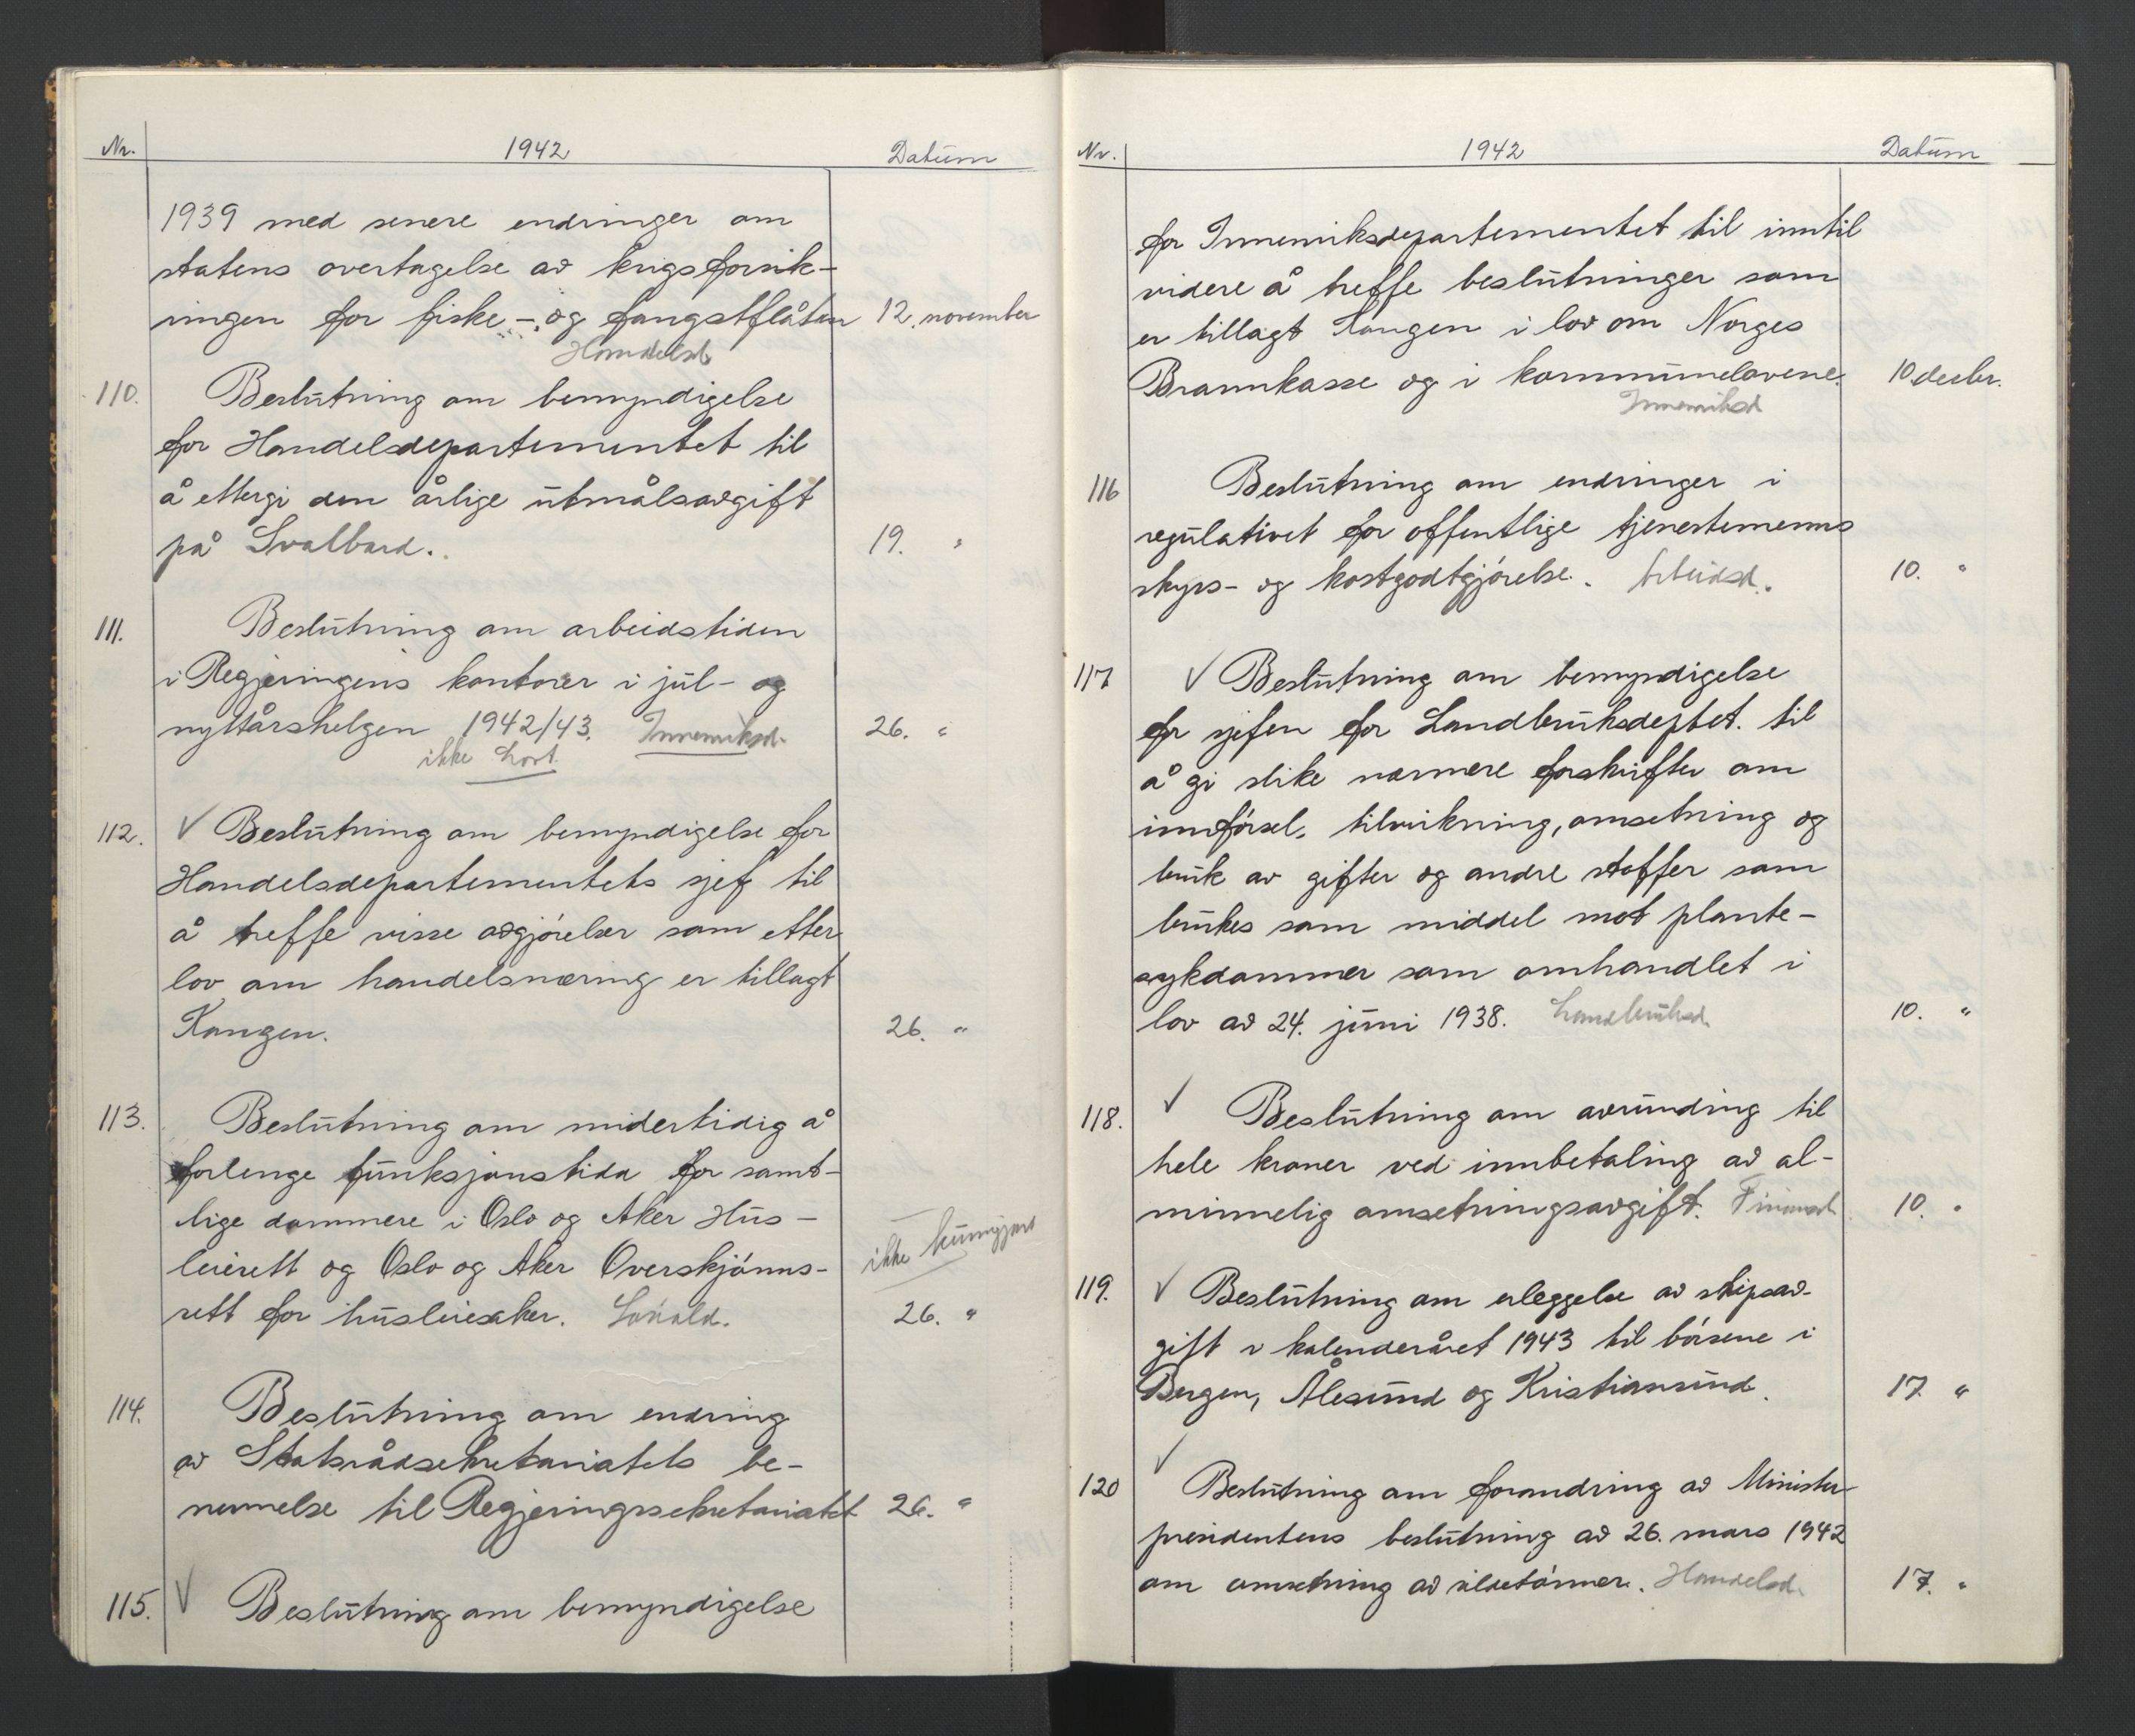 Nr. 1942 Datum
1939 med senere endringer om
statens overtagelse av krigsforsik-
ringen for fiske- og fangstflåten 12. november
Handelsd.
110. Beslutning om bemyndigelse
for Handelsdepartementet til
å ettergi den årlige utmålsavgift
på Svalbard. 19. "
111. Beslutning om arbeidstiden
i Regjeringens kontorer i jul- og
nyttårshelgen 1942/43. Innenriksd. 26. "
ikke Lovt.
112. √ Beslutning om bemyndigelse for
Handelsdepartementets sjef til
å treffe visse avgjørelser som etter
lov om handelsnæring er tillagt
Kongen. 26. "
113. Beslutning om midertidig å
forlenge funksjonstida for samt-
lige dommere i Oslo og Aker Hus-
leierett og Oslo og Aker Overskjønns- ikke kunngjort
rett for husleiesaker. Sosiald. 26. "
114. Beslutning om endring
av Statsrådsekretariatets be-
nevnelse til Regjeringssekretariatet 26. "
115. √ Beslutning om bemyndigelse
Nr. 1942 Datum
for Innenriksdepartementet til inntil
videre å treffe beslutninger som
er tillagt Kongen i lov om Norges
Brannkasse og i kommunelovene. 10. decbr.
Innenriksd
116 Beslutning om endringer i
regulativet for offentlige tjenestemenns
skyss- og kostgodtgjørelse. Arbeidsd. 10. "
117 √ Beslutning om bemyndigelse
for sjefen for Landbruksdeptet. til
å gi slike nærmere forskrifter om
innførsel, tilvirkning, omsetning og
bruk av gifter og andre stoffer som
brukes som middel mot plante-
sykdommer som omhandlet i
lov av 24. juni 1938. Landbruksd. 10. "
118. √ Beslutning om avrunding til
hele kroner ved innbetaling av al-
minnelig omsetningsavgift. Finansd. 10. "
119. √ Beslutning om erleggelse av skipsav-
gift i kalenderåret 1943 til børsene i
Bergen, Ålesund og Kristiansund. 17. "
√
120 Beslutning om forandring av Minister-
presidentens beslutning av 26. mars 1942
om omsetning av sildetønner. Handelsd. 17. "